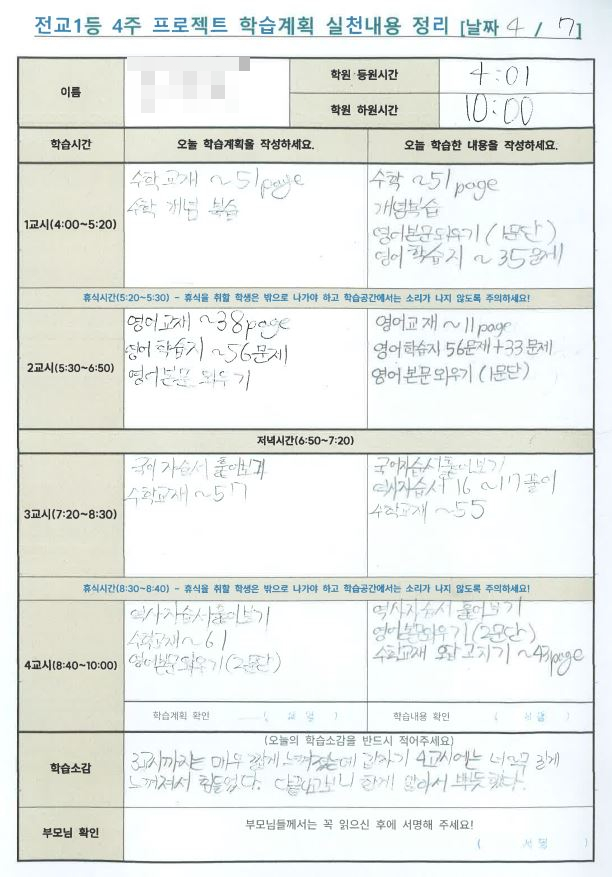 전교1등 4주 프로젝트 학습계획 실천내용 정리 [날짜 4 / 7]
이름
학원 등원시간 4:01
학원 하원시간 10:00
학습시간 오늘 학습계획을 작성하세요. 오늘 학습한 내용을 작성하세요.
1교시(4:00~5:20)
수학교재 ~51page
수학 개념 복습
수학 ~51page
개념복습
영어본문외우기 (1문단)
영어 학습지 ~35문제
휴식시간(5:20~5:30) - 휴식을 취할 학생은 밖으로 나가야 하고 학습공간에서는 소리가 나지 않도록 주의하세요!
2교시(5:30~6:50)
영어교재 ~38page
영어 학습지 ~56문제
영어본문 외우기
영어교재 ~11page
영어학습지 56문제+33문제
영어본문외우기 (1문단)
저녁시간(6:50~7:20)
3교시(7:20~8:30)
국어 자습서 훑어보기
수학교재 ~57
국어자습서 훑어보기
역사자습서 16 ~17 풀이
수학교재 ~55
휴식시간(8:30~8:40) - 휴식을 취할 학생은 밖으로 나가야 하고 학습공간에서는 소리가 나지 않도록 주의하세요!
4교시(8:40~10:00)
역사자습서훑어보기
수학교재~61
영어본문외우기(2문단)
역사자습서 훑어보기
영어본문외우기(2문단)
수학교재 오답고치기 ~43page
학습계획 확인 ( 서명 )
학습내용 확인 ( 서명 )
학습소감
(오늘의 학습소감을 반드시 적어주세요)
3교시까지는 매우 짧게 느껴졌는데 갑자기 4교시에는 너무 길게
느껴져서 힘들었다. 다 끝나고보니 한게 많아서 뿌듯했다.
부모님 확인
부모님들께서는 꼭 읽으신 후에 서명해 주세요!
( 서명 )